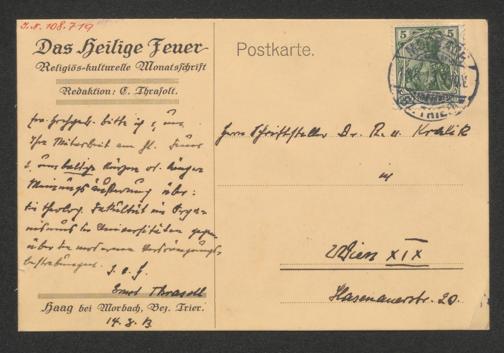 I. N. 108.719
Das Heilige Feuer
Religiös-kulturelle Monatsschrift
Redaktion: E. Thrasolt.
bitte ich, um
Ihre Mitarbeit am hl. Feuer
u. um baldige kurze od. längere
Meinungsäusserung über:
die theolog. Fakultät im Orga-
nismus der Universitäten gegen-
über den modernen
bestrebungen.
Ernst Thrasolt
Haag bei Morbach, Bez. Trier.
14. 3. 13
Postkarte.
5 5
Herrn Schriftsteller Dr. R. v. Kralik
in
Wien XIX
Hasenauerstr. 20.